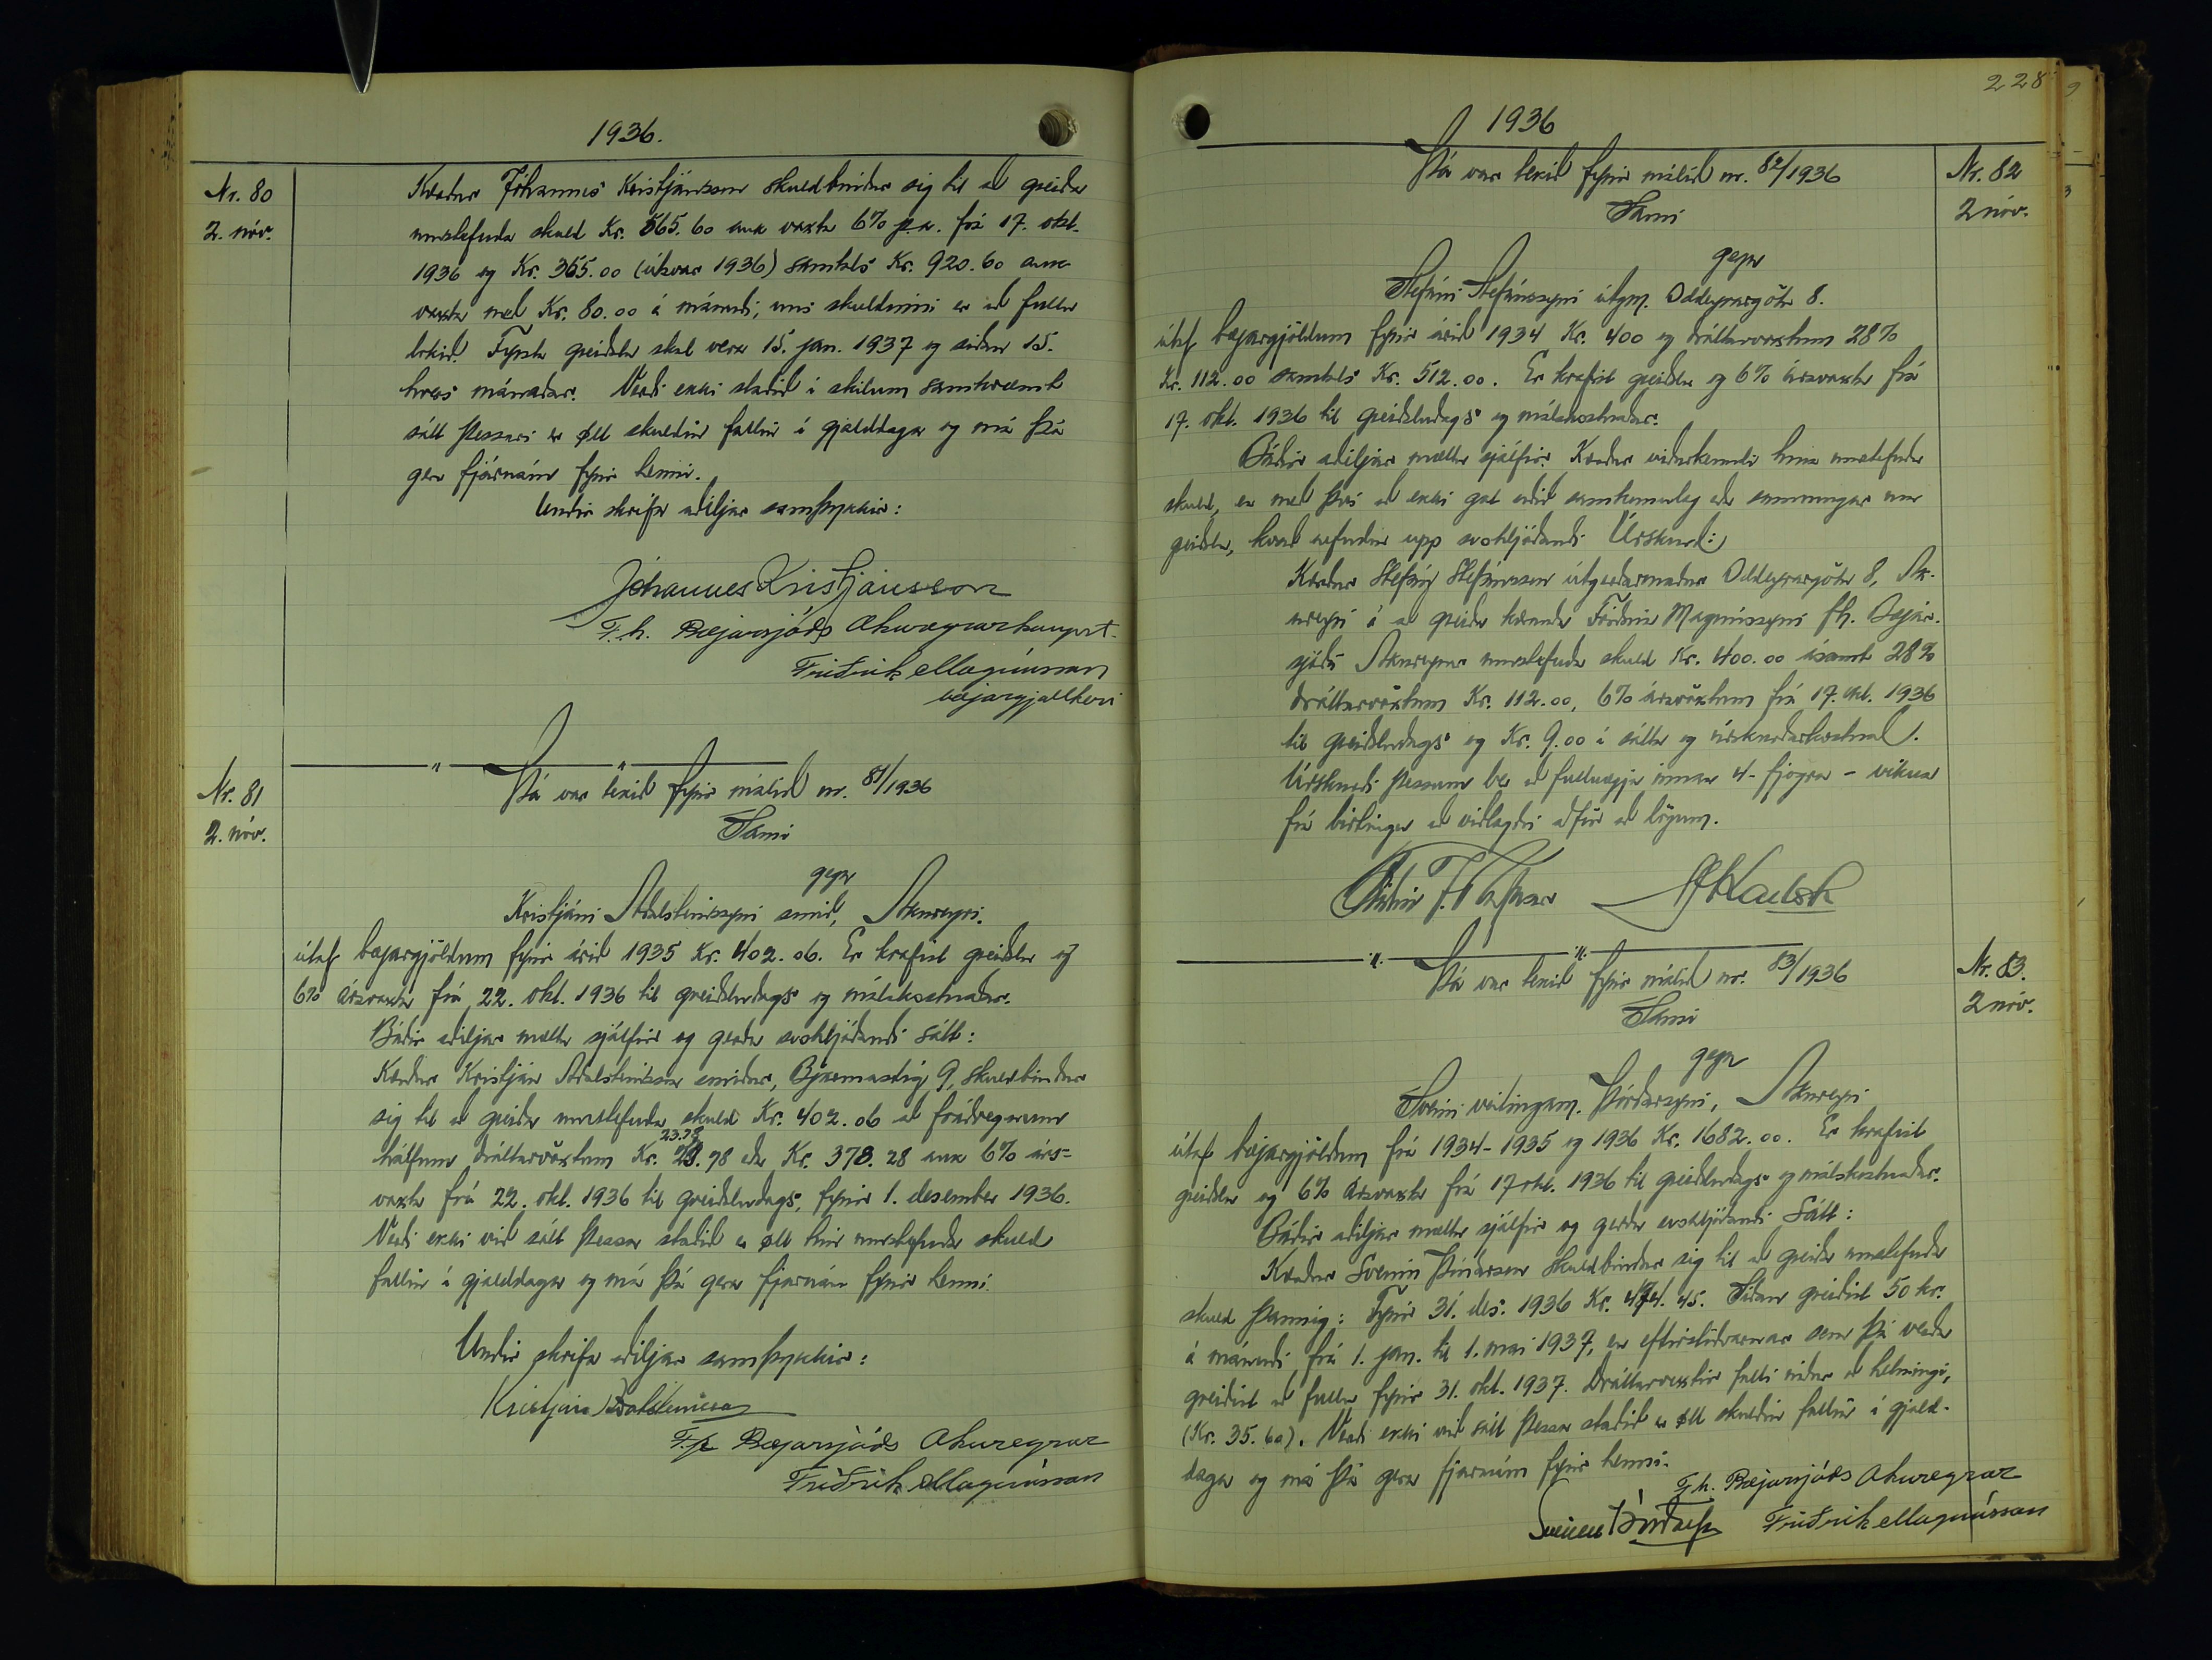 1936.
Nr. 80
2. nóv.
Kærður Jóhannes Kristjánsson skuldbindur sig til að greiða
umstefnda skuld Kr. 565.60 auk vaxta 6% p.a. frá 17. okt.
1936 og Kr. 355.00 (útsvar 1936) samtals Kr. 920.60 auk
vaxta með Kr. 80.00 á mánuði, uns skuldinni er að fullu
lokið. Fyrsta greiðsla skal vera 15. jan. 1937 og síðan 15.
hvers mánaðar. Verði ekki staðið í skilum samkvæmt
sátt þessari er öll skuldin fallin í gjalddaga og má þá
gera fjárnám fyrir henni.
Undir skrifa aðiljar samþykkir:
Jóhannes Kristjánsson
F.h. Bæjarsjóðs Akureyrarkaupst.
Friðrik Magnússon
bæjargjaldkeri
Nr. 81
2. nóv.
Þá var tekið fyrir málið nr. 81/1936
Sami
gegn
Kristjáni Aðalsteinssyni smið, Akureyri.
útaf bæjargjöldum fyrir árið 1935 Kr. 402.06. Er krafist greiðslu og
6% ársvaxta frá 22. okt. 1936 til greiðsludags og málskostnaðar.
Báðir aðiljar mættu sjálfir og gerðu svohljóðandi sátt:
Kærður Kristján Aðalsteinsson smiður, Bjarmastíg 9, skuldbindur
sig til að greiða umstefnda skuld Kr. 402.06 að frádregnum
23.78
hálfum dráttarvöxtum Kr. 23.78 eða Kr. 378.28 auk 6% árs-
vaxta frá 22. okt. 1936 til greiðsludags, fyrir 1. desember 1936.
Verði ekki við sátt þessa staðið er öll hin umstefnda skuld
fallin í gjalddaga og má þá gera fjárnám fyrir henni.
Undir skrifa aðiljar samþykkir:
Kristján Aðalsteinsson
F.h. Bæjarsjóðs Akureyrar
Friðrik Magnússon
228
1936
Nr. 82
2 nóv.
Þá var tekið fyrir málið nr. 82/1936
Sami
gegn
Stefáni Stefánssyni útgm. Oddeyrargötu 8.
útaf bæjargjöldum fyrir árið 1934 Kr. 400 og dráttarvöxtum 28%
Kr. 112.00 samtals Kr. 512.00. Er krafist greiðslu og 6% ársvaxta frá
17. okt. 1936 til greiðsludags og málskostnaðar.
Báðir aðiljar mættu sjálfir. Kærður viðurkenndi hina umstefndu
skuld, en með því að ekki gat orðið samkomulag eða samningar um
greiðslu, kvað nefndin upp svohljóðandi Úrskurð:
Kærður Stefán Stefánsson útgerðarmaður Oddeyrargötu 8, Ak-
ureyri á að greiða kæranda Friðrik Magnússyni fh. Bæjar-
sjóðs Akureyrar umstefnda skuld Kr. 400.00 ásamt 28%
dráttarvöxtum Kr. 112.00, 6% ársvöxtum frá 17. okt. 1936
til greiðsludags og Kr. 9.00 í sátta og úrskurðarkostnað.
Úrskurði þessum ber að fullnægja innan 4 - fjögra - vikna
frá birtingu að viðlagðri aðför að lögum.
Nr. 83.
2 nóv.
Þá var tekið fyrir málið nr. 83/1936
Sami
gegn
Sveini veitingam. Þórðarsyni, Akureyri
útaf bæjargjöldum frá 1934-1935 og 1936 Kr. 1682.00. Er krafist
greiðslu og 6% ársvaxta frá 17 okt. 1936 til greiðsludags og málskostnaðar.
Báðir aðiljar mættu sjálfir og gerðu svohljóðandi Sátt:
Kærður Sveinn Þórðarson skuldbindur sig til að greiða umstefnda
skuld þannig: Fyrir 31. des. 1936 Kr. 474.45. Síðan greiðist 50 kr.
á mánuði frá 1. jan. til 1. maí 1937, en eftirstöðvarnar sem þá verða
greiðist að fullu fyrir 31. okt. 1937. Dráttarvextir falli niður að helmingi,
(Kr. 35.60). Verði ekki við sátt þessa staðið er öll skuldin fallin í gjald-
daga og má þá gera fjárnám fyrir henni.
F.h. Bæjarsjóðs Akureyrar
Sveinn Þórðarson Friðrik Magnússon